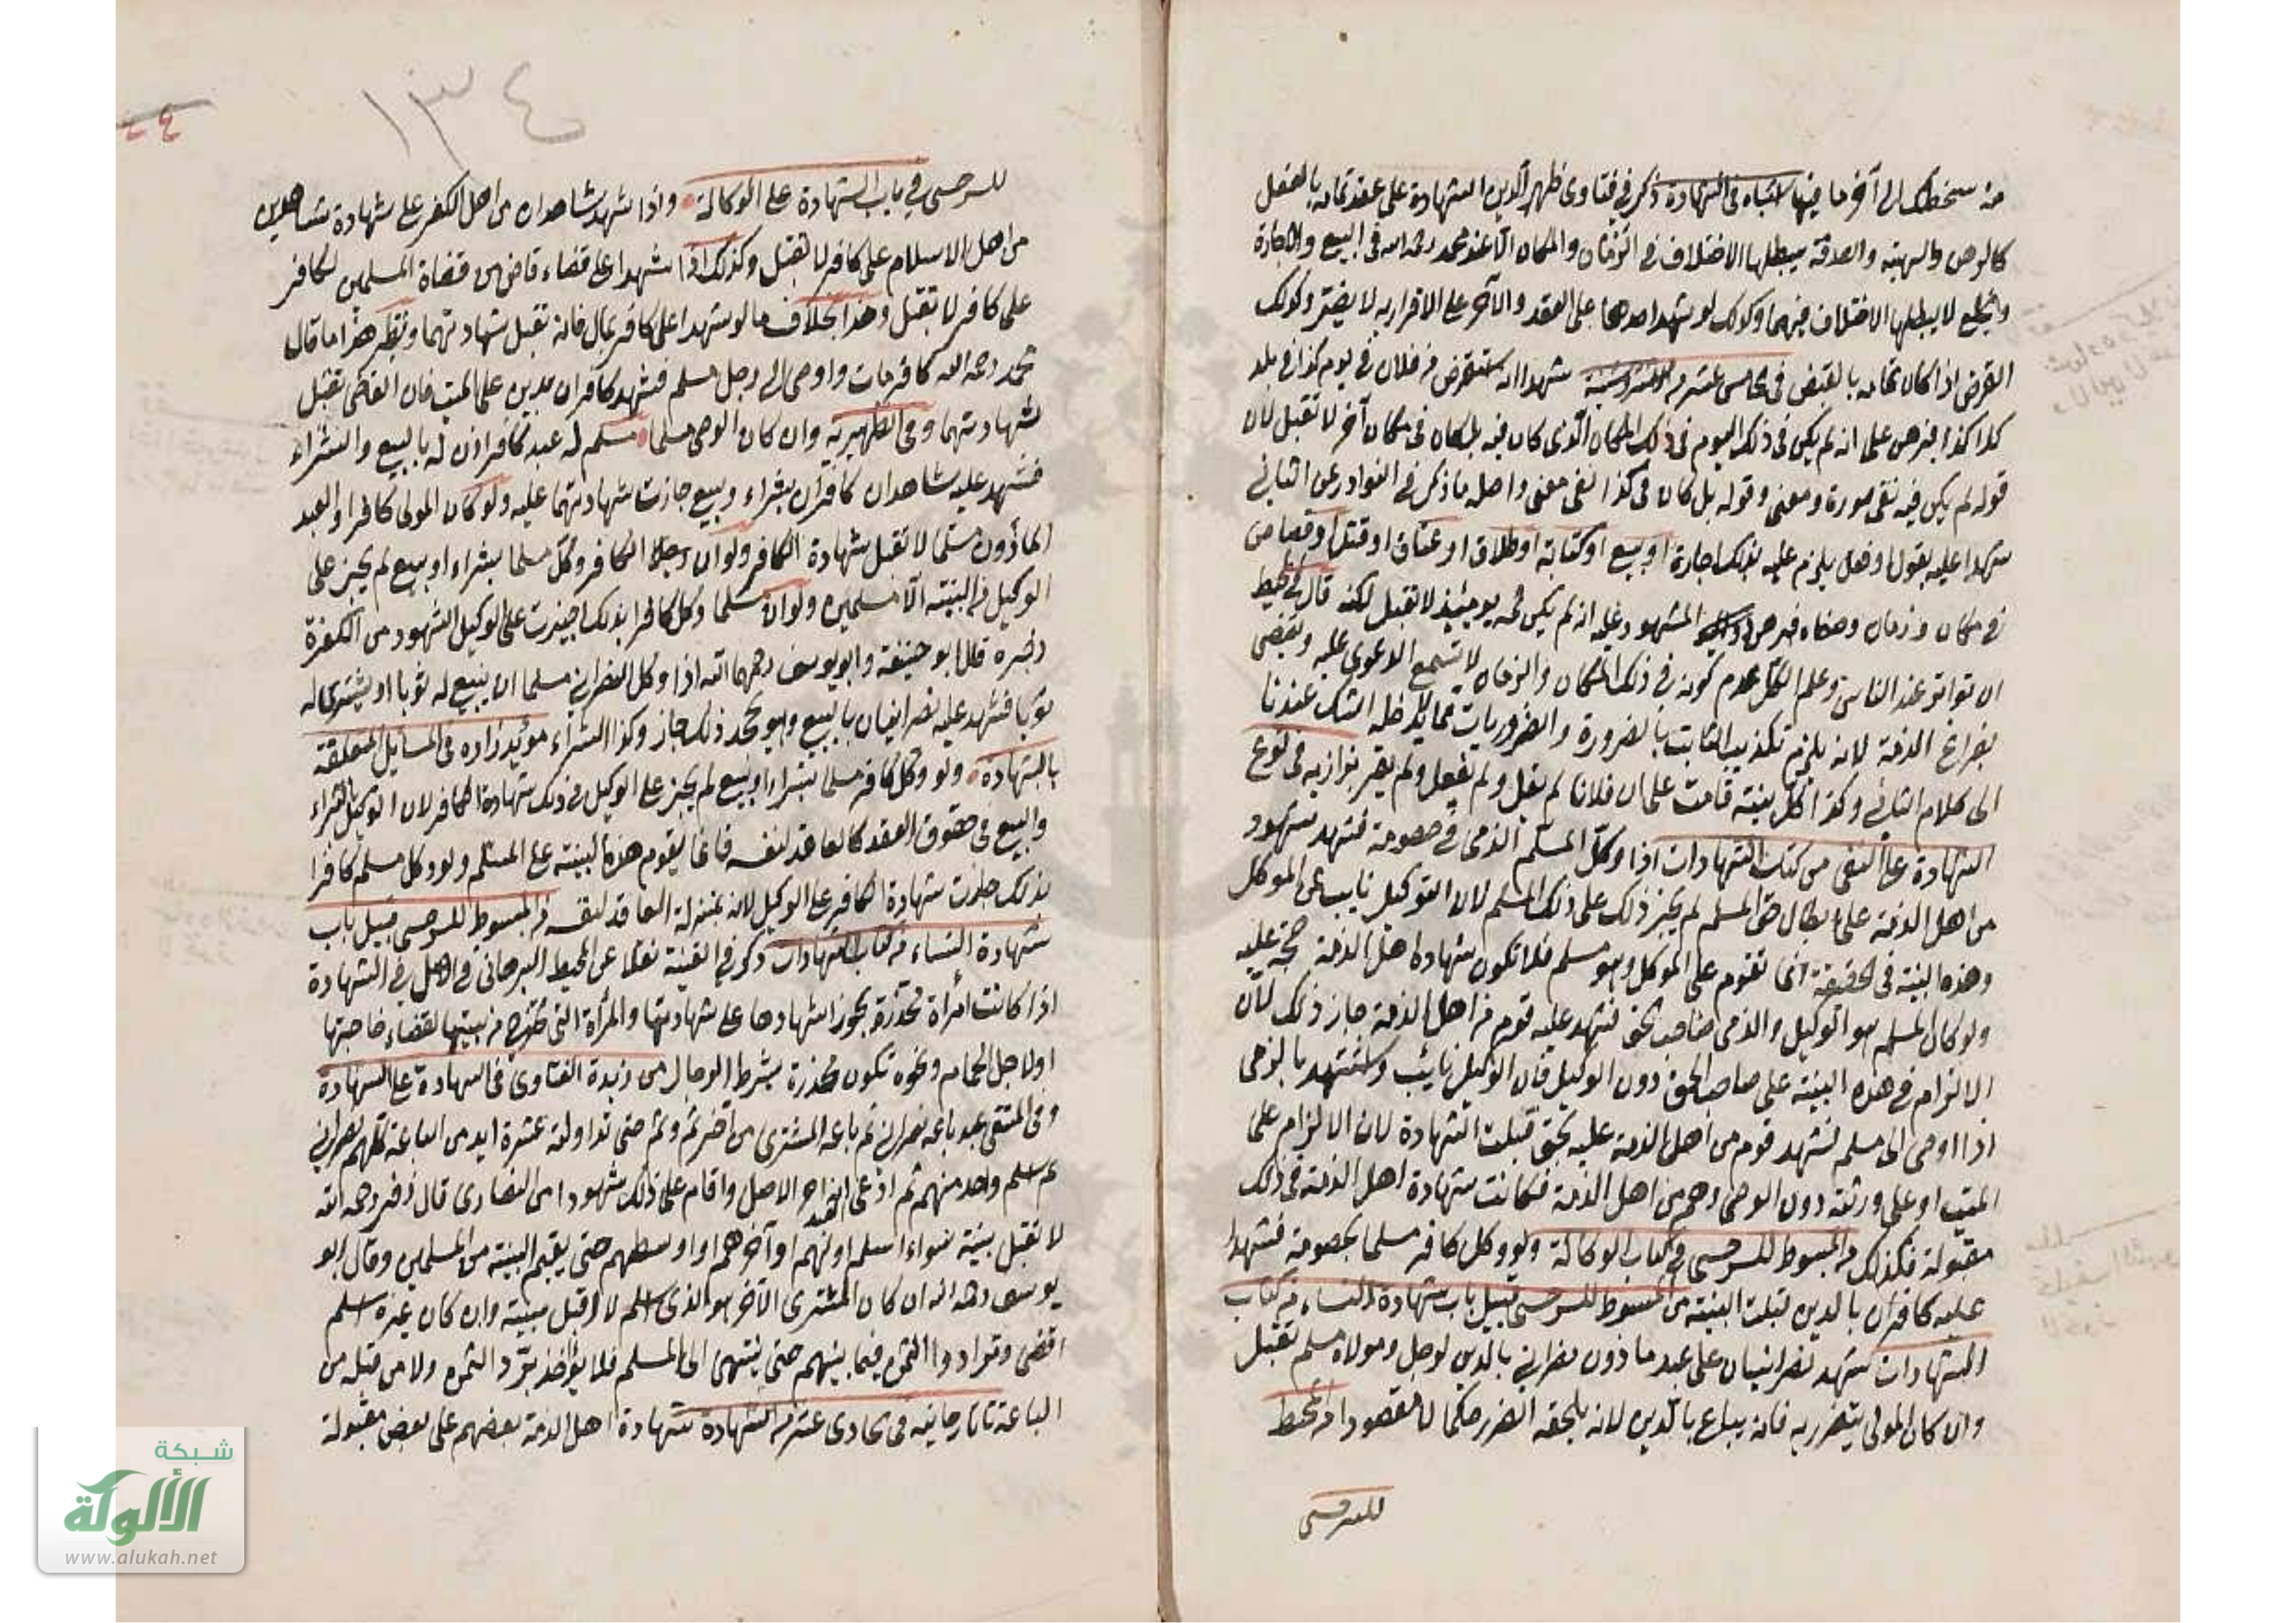 من سخطك الى آخر ما فيها اشتباه في الشهادة ذكر في فتاوى ظهير الدين الشهادة على عقد تمامه بالفعل
كالرهن والهبة والصدقة يبطلها الاختلاف في الزمان والمكان الا عند محمد رحمه الله في البيع والاجارة
والخلع لا يبطلها الاختلاف فيهما وكذلك لو شهد احدهما على العقد والآخر على الاقرار به لا يضر وكذلك
القرض اذا كان تمامه بالقبض في خامس عشر من شهدا انه استقرض من فلان في يوم كذا في بلد
كذا كذا فبرهن على انه لم يكن في ذلك اليوم في ذلك المكان الذي كان فيه بل كان في مكان آخر لا تقبل لان
قوله لم يكن فيه نفي صورة ومعنى وقوله بل كان في كذا نفي معنى واصله ما ذكر في النوادر عن الثاني
شهدا عليه بقول او فعل يلزم عليه بذلك اجارة او بيع او كتابة او طلاق او عتاق او قتل او قصاص
في مكان وزمان وصفاه فبرهن المشهود عليه انه لم يكن ثمه يومئذ لا تقبل لكنه قال في المحيط
ان تواتر عند الناس وعلم الكل عدم كونه في ذلك المكان والزمان لا تسمع الدعوى عليه ويقضى
بفراغ الذمة لانه يلزم تكذيب الثابت بالضرورة والضروريات مما لا يدخله الشك عندنا
الى كلام الثاني وكذا كل بينة قامت على ان فلانا لم يقل ولم يفعل ولم يقر بزازيه في نوع
الشهادة على النفي من كتاب الشهادات اذا وكل المسلم الذمي في خصومة فشهد شهود
من اهل الذمة على ابطال حق المسلم لم يجز ذلك على ذلك المسلم لان الوكيل نايب عن الموكل
وهذه البينة في الحقيقة انما تقوم على الموكل وهو مسلم فلا تكون شهادة اهل الذمة حجة عليه
ولو كان المسلم هو الوكيل والذمي صاحب الحق فشهد عليه قوم من اهل الذمة جاز ذلك لان
الالزام في هذه البينة على صاحب الحق دون الوكيل فان الوكيل نائب واستشهد بالذمي
اذا اوصى الى مسلم فشهد قوم من اهل الذمة عليه بحق قبلت الشهادة لان الالزام على
الميت او على ورثته دون الوصي وهم من اهل الذمة فكانت شهادة اهل الذمة في ذلك
مقبولة فكذلك من المبسوط للسرخسي في كتاب الوكالة ولو وكل كافر مسلما بخصومة فشهد
عليه كافران بالدين قبلت البينة من المبسوط للسرخسي قبيل باب شهادة النساء من كتاب
الشهادات شهد نصرانيان على عبد ماذون نصراني بالدين لرجل ومولاه مسلم تقبل
وان كان المولى يتضرر به فانه يباع بالدين لانه يلحقه الضرر حكما لا مقصودا من المحيط
للسرخسي
١٣٤
للسرخسي في باب الشهادة على الوكالة واذا شهد شاهدان من اهل الكفر على شهادة شاهدين
من اهل الاسلام على كافر لا تقبل وكذلك اذا شهدا على قضاء قاض من قضاة المسلمين لكافر
على كافر لا تقبل وهذا بخلاف ما لو شهدا على كافر بمال فانه تقبل شهادتهما ونظير هذا ما قال
محمد رحمه الله كافر مات واوصى الى رجل مسلم فشهد كافران بدين على الميت فان القاضي تقبل
شهادتهما وفي الظهيرية وان كان الوصي مسلما مسلم له عبد كافر اذن له بالبيع والشراء
فشهد عليه شاهدان كافران بشراء وبيع جازت شهادتهما عليه ولو كان المولى كافرا والعبد
المأذون مسلما لا تقبل شهادة الكافر ولو ان رجلا الكافر وكل مسلما بشراء او بيع لم يجز على
الوكيل من البينة الا مسلمين ولو ان مسلما وكل كافرا بذلك اجيزت على الوكيل الشهود من الكفرة
وغيره قال ابو حنيفة وابو يوسف رحمهما الله اذا وكل النصراني مسلما ان يبيع له ثوبا او يشتري له
ثوبا فشهد عليه نصرانيان بالبيع وهو يجحد ذلك جاز وكذا الشراء مؤيد زاده في المسايل المتعلقة
بالشهادة ولو وكل كافر مسلما بشراء او بيع لم يجز على الوكيل في ذلك شهادة الكافر لان الوكيل بالشراء
والبيع في حقوق العقد كالعاقد لنفسه فانما يقوم هذه البينة على المسلم ولو وكل مسلم كافرا
بذلك جازت شهادة الكافر على الوكيل لانه بمنزلة العاقد لنفسه من المبسوط للسرخسي قبيل باب
شهادة النساء من كتاب الشهادات ذكر في القنية نقلا عن المحيط البرهاني في الشهادة
اذا كانت امرأة مخدرة يجوز اشهادها على شهادتها والمرأة التي تخرج من بيتها لقضاء حاجتها
او لاجل الحمام ونحوه تكون مخدرة بشرط الرجال من زبدة الفتاوى في الشهادة على الشهادة
وفي المنتقى عبد باعه نصراني ثم باعه المشتري من آخر ثم وثم حتى تداولته عشرة ايد من الباعة كلهم نصراني
ثم اسلم واحد منهم ثم ادعى العبد انه حر الاصل واقام على ذلك شهودا من النصارى قال زفر رحمه الله
لا تقبل بينته سواء اسلم اولهم او آخرهم او اوسطهم حتى يقيم البينة من المسلمين وقال ابو
يوسف رحمه الله ان كان المشتري الآخر هو الذي اسلم لا اقبل بينته وان كان غيره اسلم
اقضى وترادوا الثمن فيما بينهم حتى ينتهي الى المسلم فلا يؤاخذ برد الثمن ولا من قبله من
الباعة تاتارخانيه في الحادي عشر من الشهادة شهادة اهل الذمة بعضهم على بعض مقبولة
شبكة
الألوكة
www.alukah.net